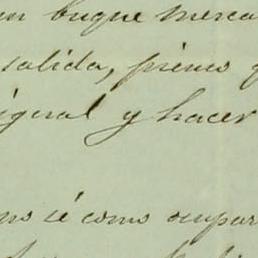 un buque merca
salida, pienso q
igual y hacer
no sé como ocupar